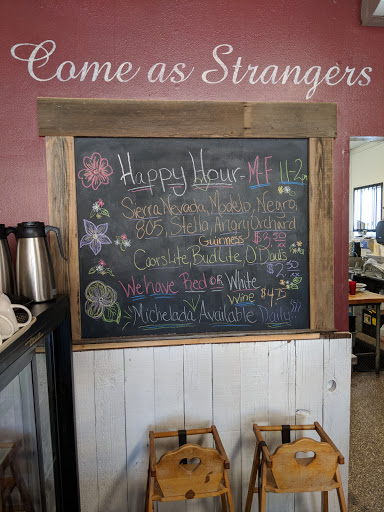 Come as Strangers
Happy Hour - M-F 11-2
Sierra Nevada, Modelo, Negra
805, Stella, Angry Orchard
Guinness $3
Coorslite, Budlite, O'Douls
$2
We have Red or White
Wine $4
Michelada Available Daily